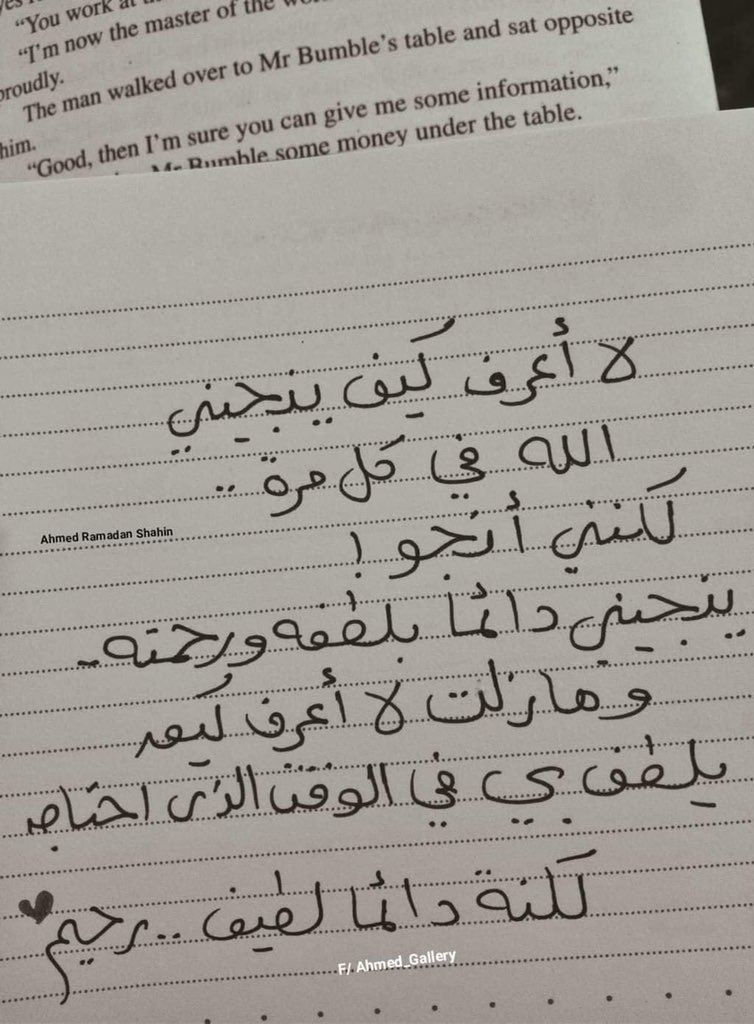 “You work at
“I’m now the master of the
proudly.
The man walked over to Mr Bumble’s table and sat opposite
him.
“Good, then I’m sure you can give me some information,”
Mr Bumble some money under the table.
لا أعرف كيف ينجيني
الله في كل مرة ..
Ahmed Ramadan Shahin
لكنني أنجو !
ينجيني دائما بلطفه ورحمته ..
وما زلت لا أعرف كيف
يلطف بي في الوقت الذي احتاج
لكنة دائما لطيف .. رحيم
F/ Ahmed_Gallery